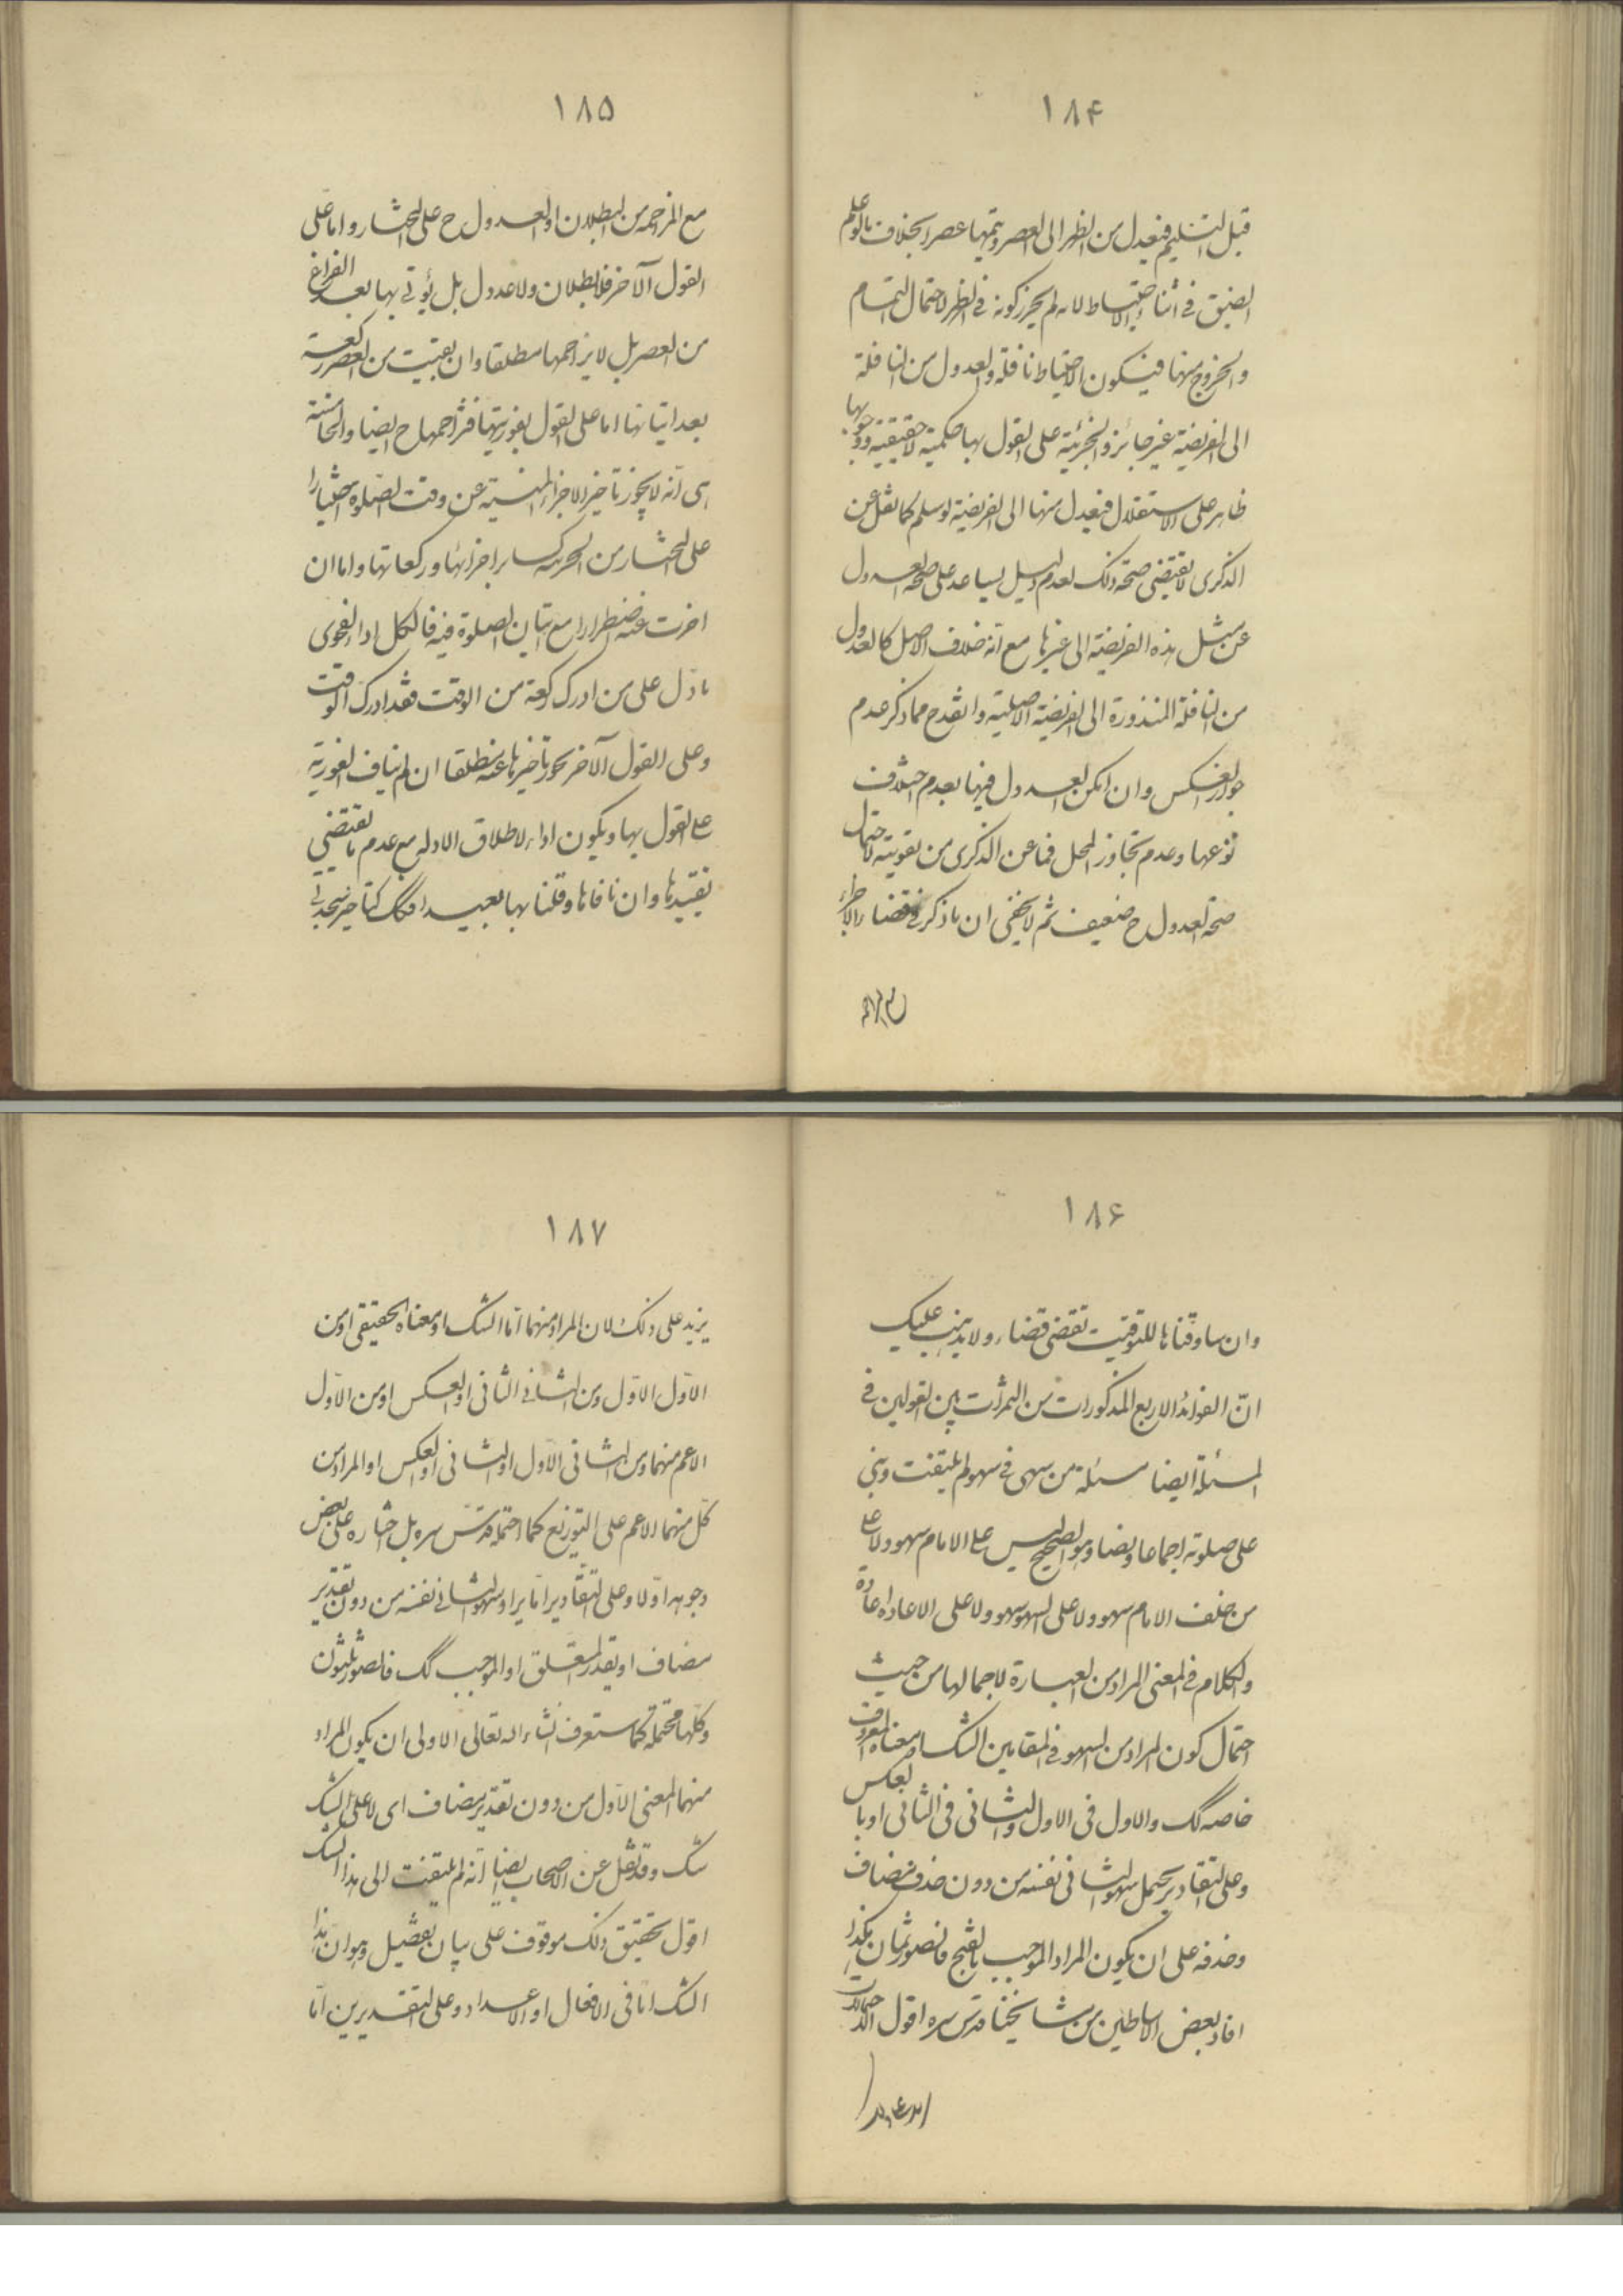 ١٨۴
قبل التسليم فيعدل من الظهر الى العصر ويتمها عصرا بخلاف ما لو علم
الضيق في اثناء الاحتياط لانه لم يحرز كونه في الظهر لاحتمال التمام
والخروج منها فيكون الاحتياط نافلة والعدول من النافلة
الى الفريضة غير جائز والجزئية على القول بها حكمية لا حقيقية ووجوبها
ظاهر على الاستقلال فيعدل منها الى الفريضة لو سلم كما نقل عن
الذكرى لا يقتضى صحة ذلك لعدم دليل يساعد على صحة العدول
عن مثل هذه الفريضة الى غيرها مع انه خلاف الاصل كالعدول
من النافلة المنذورة الى الفريضة الاصلية وانقدح مما ذكر عدم
جواز العكس وان امكن العدول فيها بعدم اختلاف
نوعها وعدم تجاوز المحل فما عن الذكرى من تقويته لاحتمال
صحة العدول ح ضعيف ثم لا يخفى ان ما ذكر في قضاء الاجزاء
مع المزاحمة
١٨۵
مع المزاحمة من البطلان او العدول ح على المختار واما على
القول الآخر فلا بطلان ولا عدول بل يؤتى بها بعد الفراغ
من العصر بل لا يزاحمها مطلقا وان بقيت من العصر ركعة
بعد اتيانها اما على القول بفوريتها فتزاحمها ح ايضا والخامسة
هى انه لا يجوز تاخير الاجزاء المنسية عن وقت الصلوة اختيارا
على المختار من الجزئية كسائر اجزائها وركعاتها واما ان
اخرت عنه اضطرارا مع اتيان الصلوة فيه فالكل اداء لفحوى
ما دل على من ادرك ركعة من الوقت فقد ادرك الوقت
وعلى القول الآخر يجوز تاخيرها عنه مطلقا ان لم يناف الفورية
على القول بها ويكون اداء لاطلاق الادلة مع عدم ما يقتضي
تقييدها وان نافاها وقلنا بها
١٨۶
وان ساوقناها للتوقيت تقضى قضاء ولا يذهب عليك
انّ الفوائد الاربع المذكورات من الثمرات بين القولين في
المسئلة ايضا مسئلة من سهى في سهو لم يلتفت وبنى
على صلوته اجماعا ونصا وهو الصحيح ليس على الامام سهو ولا على
من خلف الامام سهو ولا على السهو سهو ولا على الاعادة اعادة
والكلام في المعنى المراد من العبارة لاجمالها من حيث
احتمال كون المراد من السهو في المقامين الشك او معناه المعروف
خاصه كك والاول فى الاول والثانى فى الثانى او بالعكس
وعلى التقادير يحتمل السهو الثانى نفسه من دون حذف مضاف
وحذفه على ان يكون المراد الموجب بالفتح فالصور ثمان هكذا
افاد بعض الاساطين من مشايخنا قدس سره اقول الاحتمالات
١٨٧
يزيد على ذلك لان المراد منهما اما الشك او معناه الحقيقى او من
الاوّل الاوّل ومن الثاني الثانى او العكس او من الاوّل
الاعم منهما ومن الثانى الاوّل او الثانى او العكس او المراد من
كل منهما الاعم على التوزيع كما احتمله قدس سره بل اختاره على بعض
وجوهه اولا وعلى التقادير اما يراد السهو الثانى نفسه من دون تقدير
مضاف او يقدر المتعلق او الموجب كك فالصور ثلثون
وكلها محتملة كما ستعرف انشاء الله تعالى الاولى ان يكون المراد
منهما المعنى الاوّل من دون تقدير مضاف اى لا على الشك
شك وقد نقل عن الاصحاب ايضا انه لم يلتفت الى هذا الشك
اقول تحقيق ذلك موقوف على بيان تفصيل وهو ان هذا
الشك اما فى الافعال او الاعداد وعلى التقديرين اما